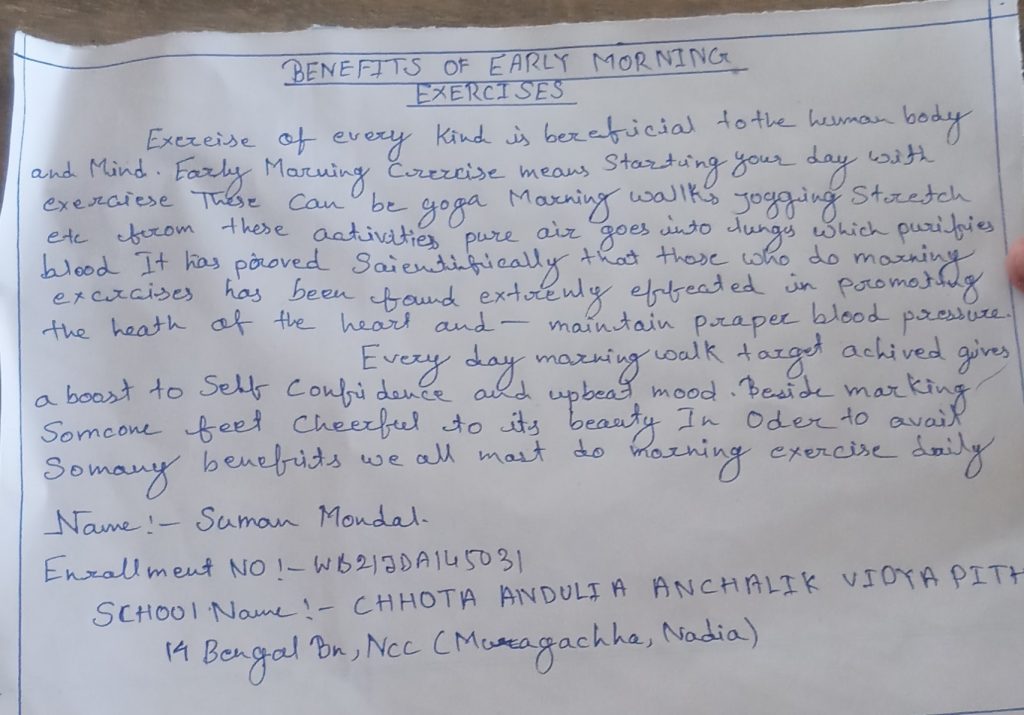 BENEFITS OF EARLY MORNING
EXERCISES
Exereise of every kind is bereficial to the human body
and Mind. Early Morning Cxercise means Starting your day with
exeraiese These Can be yoga Morning wallks Jogging Stretch
etc from these aativities pure air goes into lungs which purifies
blood It has proved Saientifically that those who do morning
excraises has been found extrenly effeated in promoting
the heath of the heart and — maintain praper blood pressure.
Every day morning walk target achived gives
a boost to Self Confidence and upbeat mood. Beside marking
Someone feel Cheerful to its beauty In Oder to avail
Somany benefits we all mast do morning exercise daily
Name :- Suman Mondal.
Enrallment NO :- WB21JDA145031
SCHOOl Name :- CHHOTA ANDULIA ANCHALIK VIDYA PITH
14 Bengal Bn, Ncc (Muragachha, Nadia)